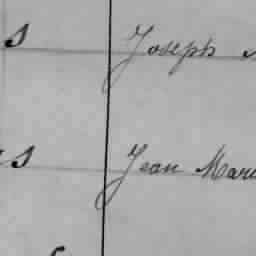 s Joseph
s Jean Mari